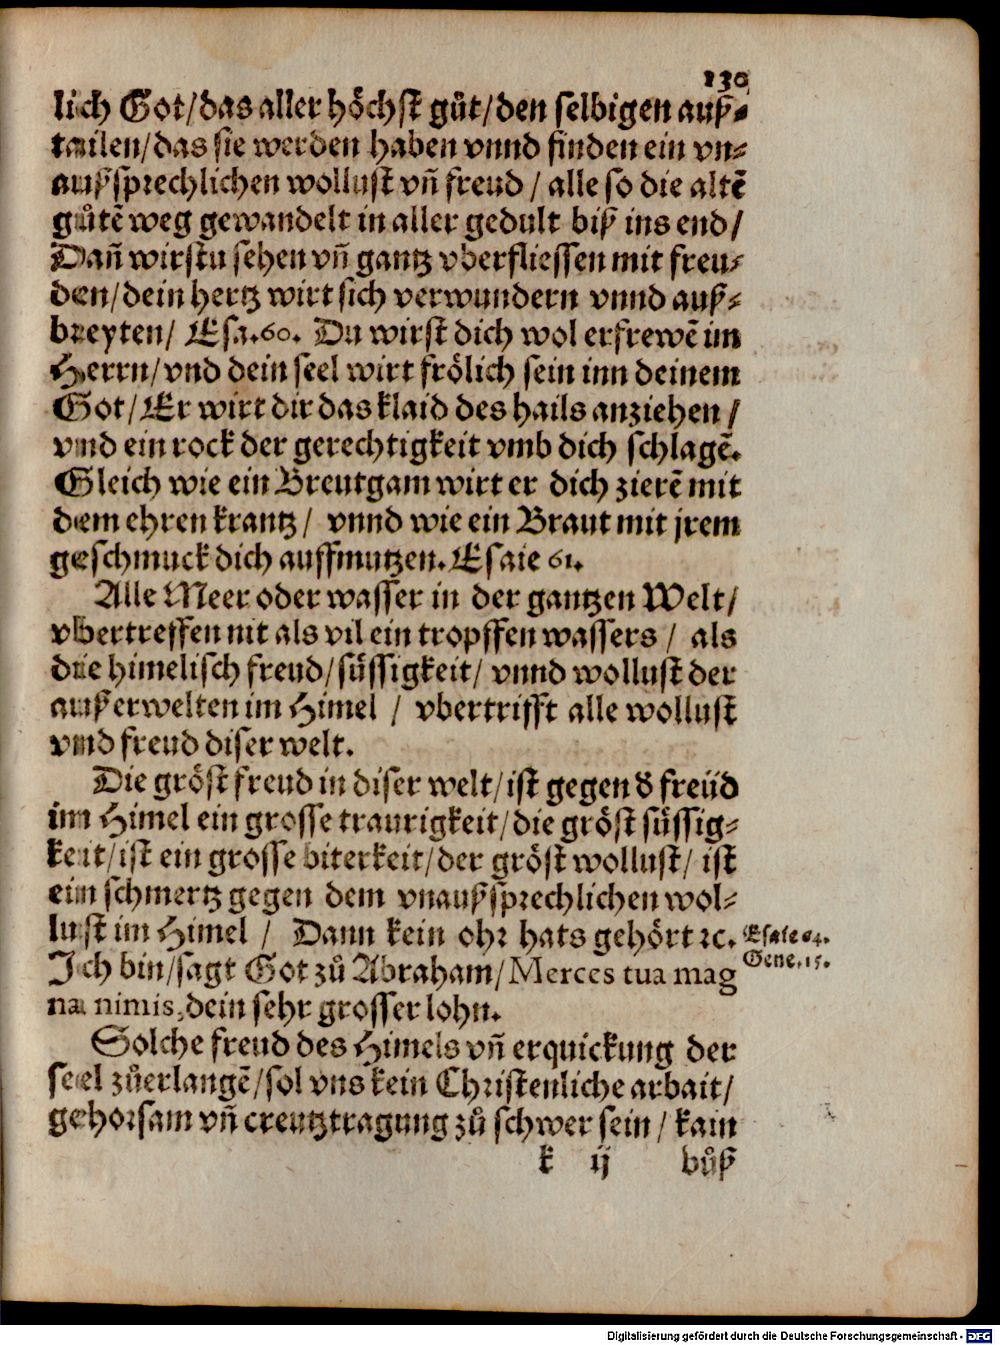 130
lich Got/das aller höchst gůt/den selbigen auß⸗
tailen/das sie werden haben vnnd finden ein vn⸗
außsprechlichen wollust vñ freud / alle so die altẽ
gůtẽ weg gewandelt in aller gedult biß ins end/
Dañ wirstu sehen vñ gantz vberfliessen mit freu⸗
den/dein hertz wirt sich verwundern vnnd auß⸗
breyten/ Esa.60. Du wirst dich wol erfrewẽ im
Herrn/vnd dein seel wirt frölich sein inn deinem
Got/Er wirt dir das klaid des hails anziehen /
vnd ein rock der gerechtigkeit vmb dich schlagẽ.
Gleich wie ein Breutgam wirt er dich zierẽ mit
dem ehren krantz/ vnnd wie ein Braut mit jrem
geschmuck dich auffmutzen. Esaie 61.
Alle Meer oder wasser in der gantzen Welt/
vbertreffen nit als vil ein tropffen wassers / als
die himelisch freud/süssigkeit/ vnnd wollust der
außerwelten im Himel / vbertrifft alle wollust
vnd freud diser welt.
Die gröst freud in diser welt/ist gegen ď freüd
im Himel ein grosse traurigkeit/die gröst süssig⸗
keit/ist ein grosse biterkeit/der gröst wollust/ ist
ein schmertz gegen dem vnaußsprechlichen wol⸗
lust im Himel / Dann kein ohr hats gehört ꝛc. Esaie 64.
Ich bin/sagt Got zů Abraham/Merces tua mag Gene.15.
na nimis, dein sehr grosser lohn.
Solche freud des Himels vñ erquickung der
seel zůerlangẽ/sol vns kein Christenliche arbait/
gehorsam vñ creutztragung zů schwer sein / kain
k ij bůß
Digitalisierung gefördert durch die Deutsche Forschungsgemeinschaft - DFG